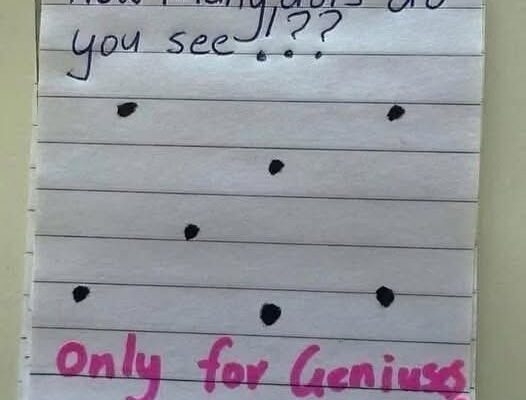 How Many dots do
you see !??
Only for Geniuses